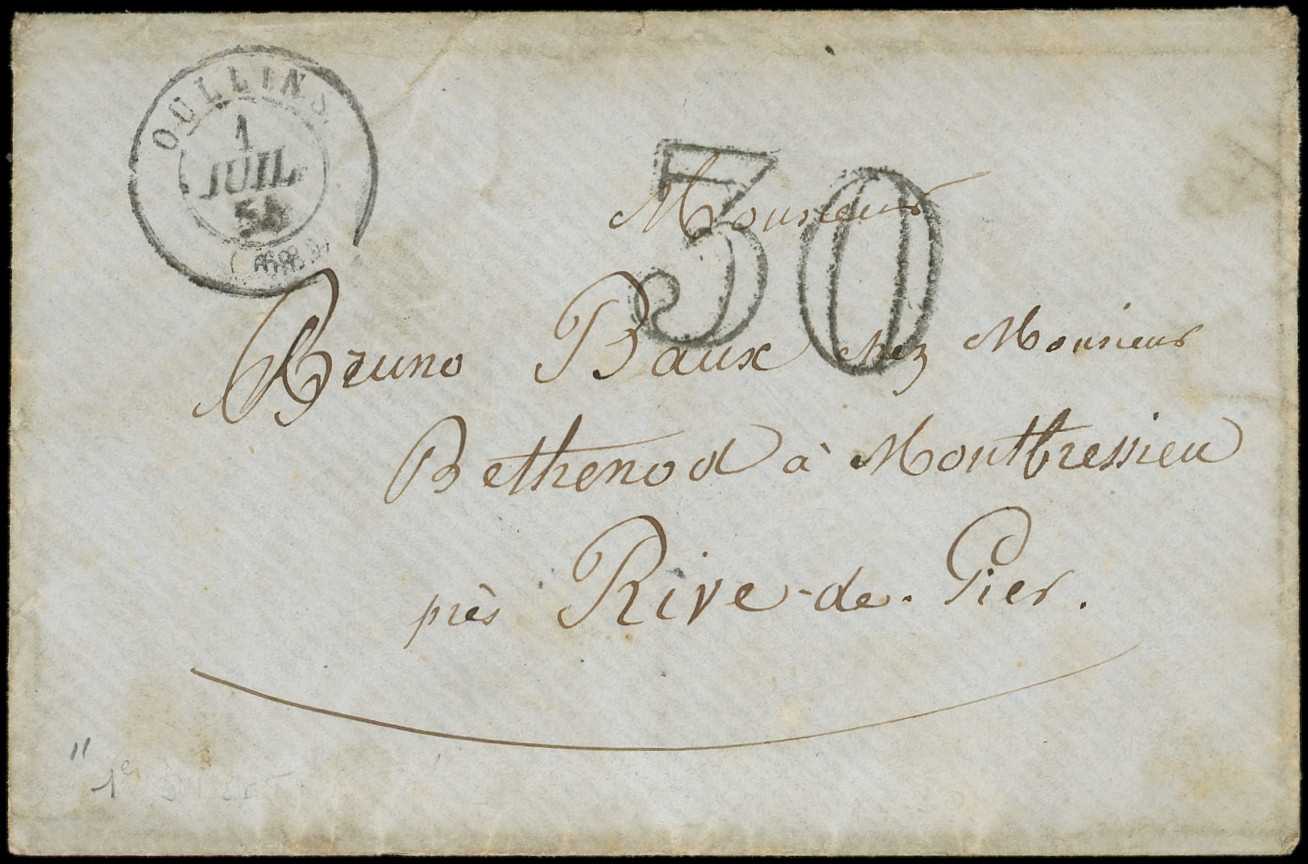 OULLINS
1
JUIL.
54
30
Monsieur
Bruno Baux chez Monsieur
Bethenod à Montbressieu
près Rive-de-Gier.
" 1er